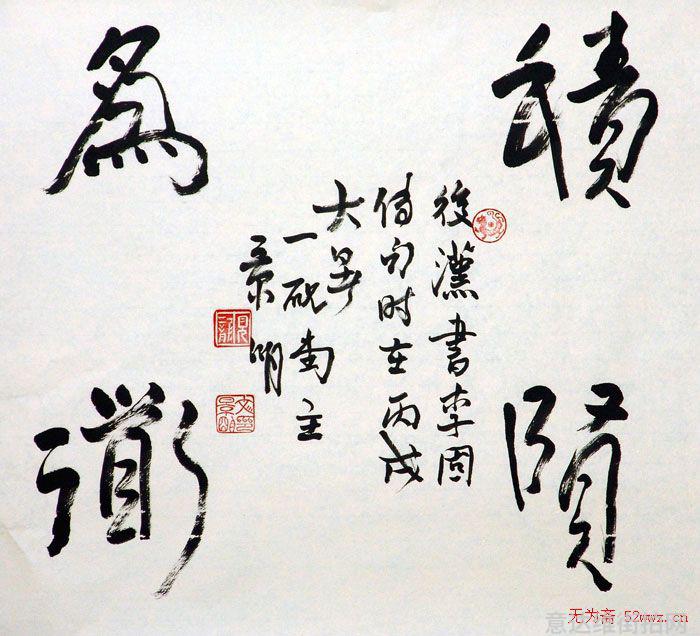 積賢
為衜
後漢書李固
傳句时在丙戌
大暑
一砚堂主
景明
无为斋 52wwz.cn